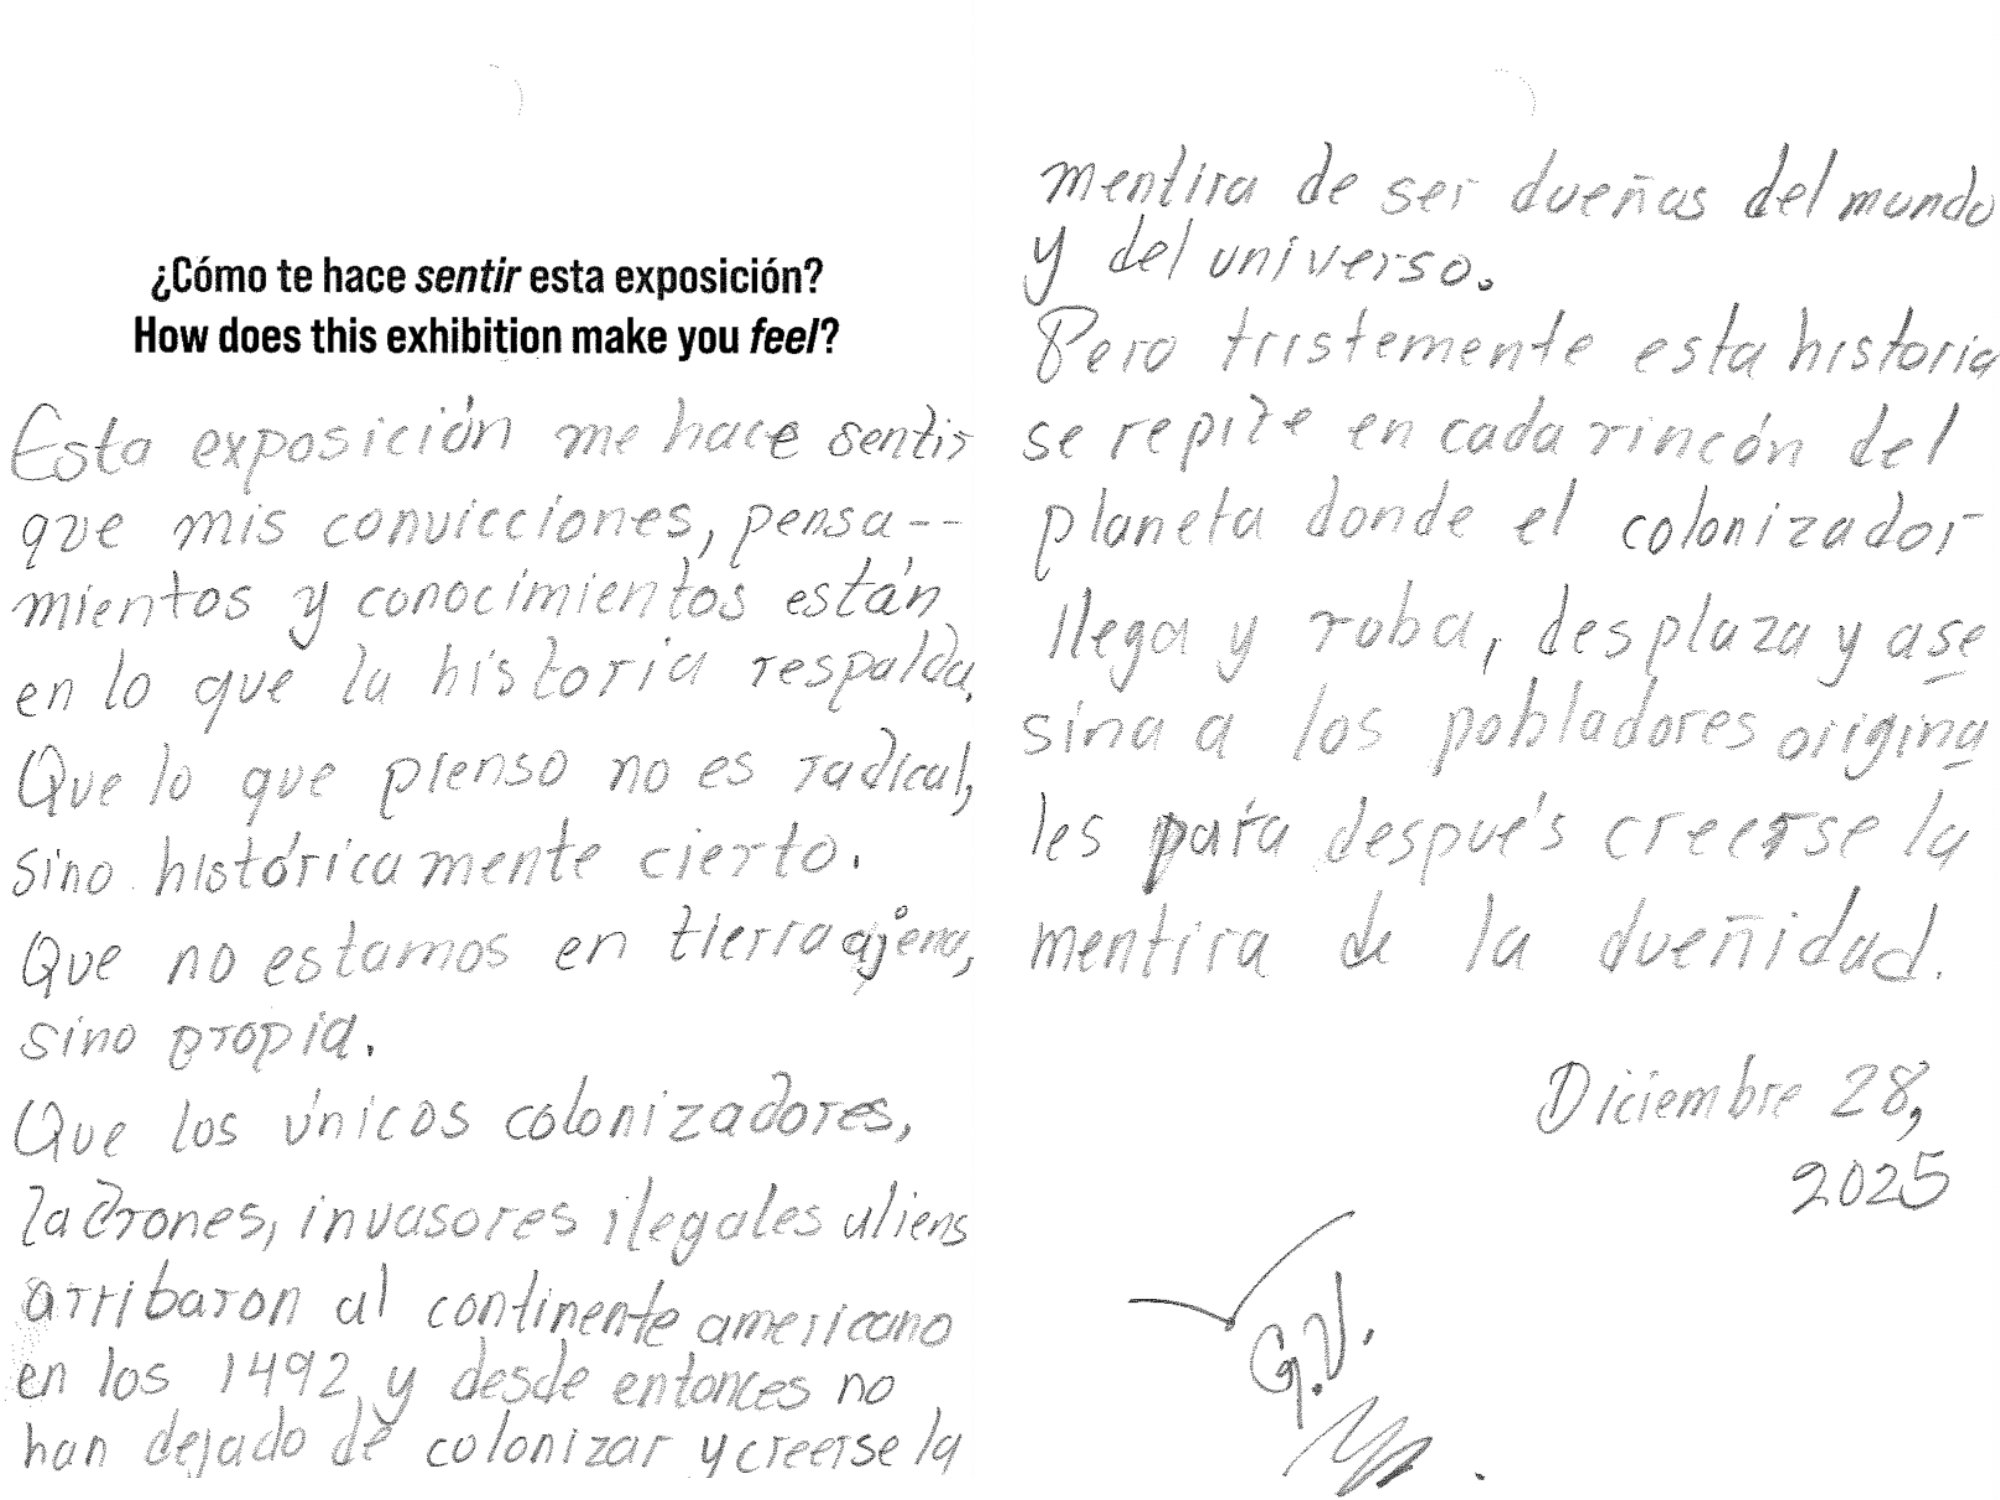 ¿Cómo te hace sentir esta exposición?
How does this exhibition make you feel?
Esta exposición me hace sentir
que mis convicciones, pensa--
mientos y conocimientos están
en lo que la historia respalda.
Que lo que pienso no es radical,
sino históricamente cierto.
Que no estamos en tierra ajena,
sino propia.
Que los únicos colonizadores,
ladrones, invasores ilegales aliens
arribaron al continente americano
en los 1492, y desde entonces no
han dejado de colonizar y creerse la
mentira de ser dueñas del mundo
y del universo.
Pero tristemente esta historia
se repite en cada rincón del
planeta donde el colonizador
llega y roba, desplaza y ase
sina a los pobladores origina
les para después creerse la
mentira de la dueñidad.
Diciembre 28,
2025
G.V.